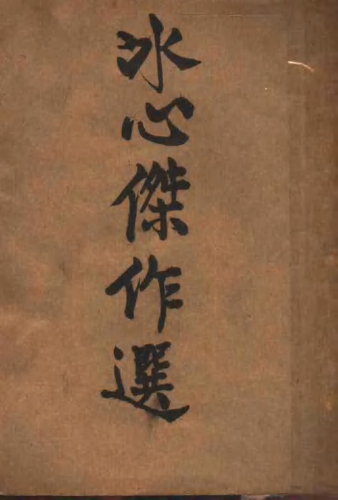 冰心傑作選